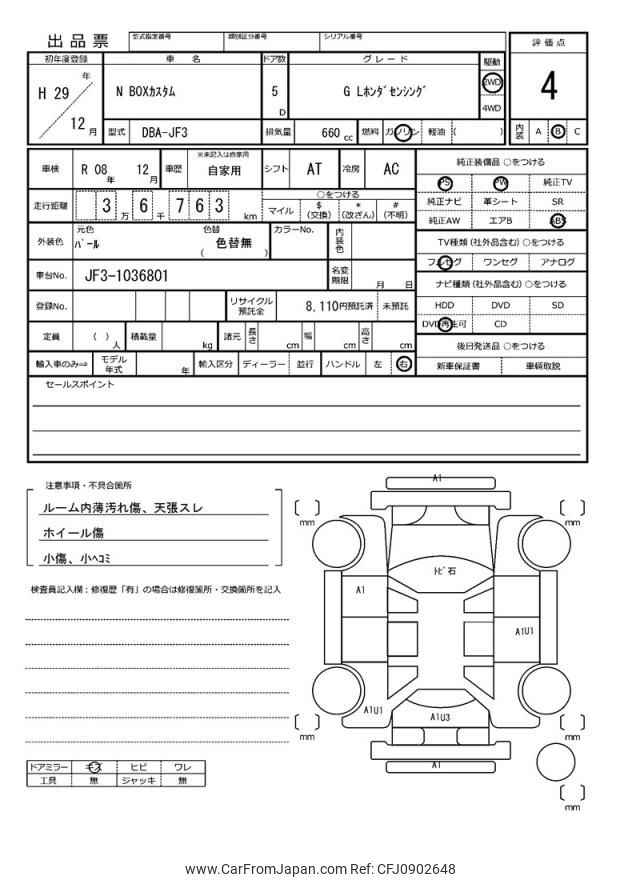 出品票 型式指定番号 類別区分番号 シリアル番号 評価点
初年度登録 車名 ドア数 グレード 駆動
H 29 年 N BOXカスタム 5 D G Lホンダセンシング 2WD 4
12 月 4WD
型式 DBA-JF3 排気量 660 cc 燃料 ガソリン 軽油 ( ) 内装 A B C
車検 R 08 年 12 月 車歴 ※未記入は自家用 自家用 シフト AT 冷房 AC 純正装備品 ○をつける
PS PW 純正TV
走行距離 3 万 6 千 7 6 3 km ○をつける 純正ナビ 革シート SR
マイル $ (交換) * (改ざん) # (不明) 純正AW エアB ABS
外装色 元色 パール 色替 色替無 ( ) カラーNo. 内装色 TV種類 (社外品含む) ○をつける
フルセグ ワンセグ アナログ
車台No. JF3-1036801 名変期限 月 日 ナビ種類 (社外品含む) ○をつける
登録No. リサイクル預託金 8,110円預託済 未預託 HDD DVD SD
DVD再生可 CD
定員 ( ) 人 積載量 kg 諸元 長さ cm 幅 cm 高さ cm 後日発送品 ○をつける
輸入車のみ⇒ モデル年式 年 輸入区分 ディーラー 並行 ハンドル 左 右 新車保証書 車輌取説
セールスポイント
注意事項・不具合箇所
ルーム内薄汚れ傷、天張スレ
ホイール傷
小傷、小ヘコミ
検査員記入欄：修復歴「有」の場合は修復箇所・交換箇所を記入
A1
mm mm
トビ石
A1
A1U1
A1U1
A1U3
mm mm
A1
mm
ドアミラー キズ ヒビ ワレ
工具 無 ジャッキ 無
www.CarFromJapan.com Ref: CFJ0902648